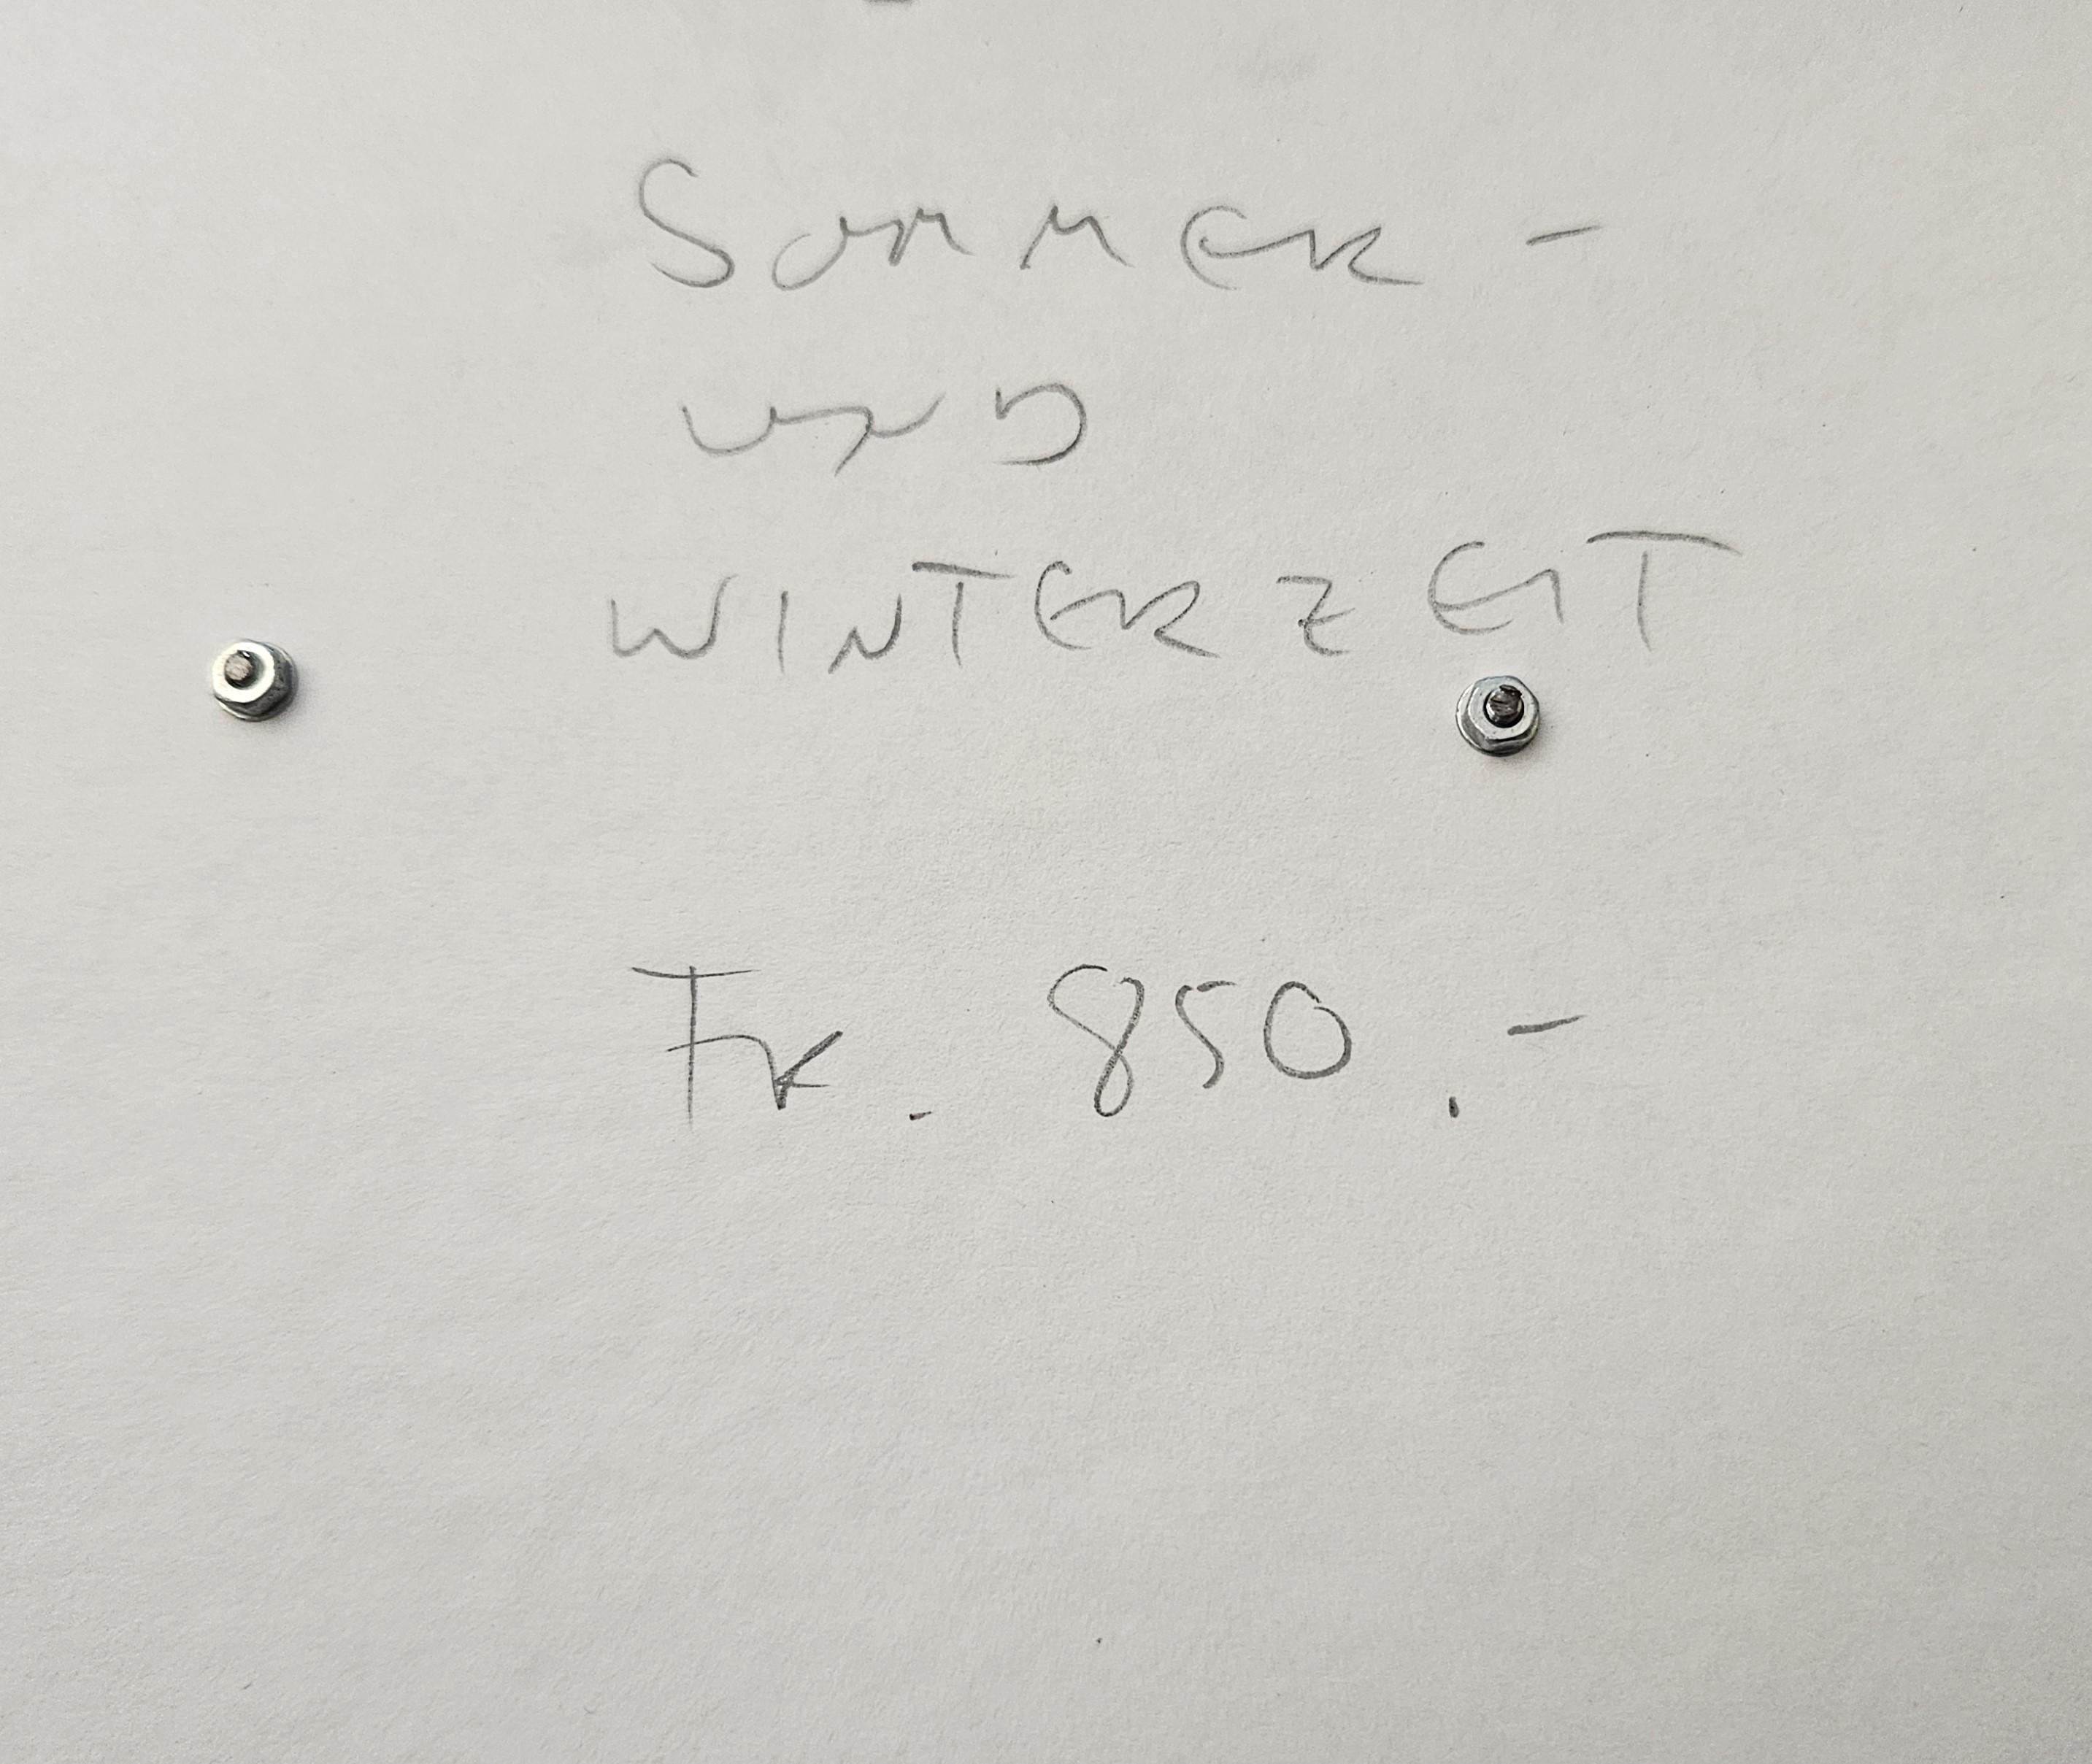 SOMMER -
UND
WINTERZEIT
FR. 850.-